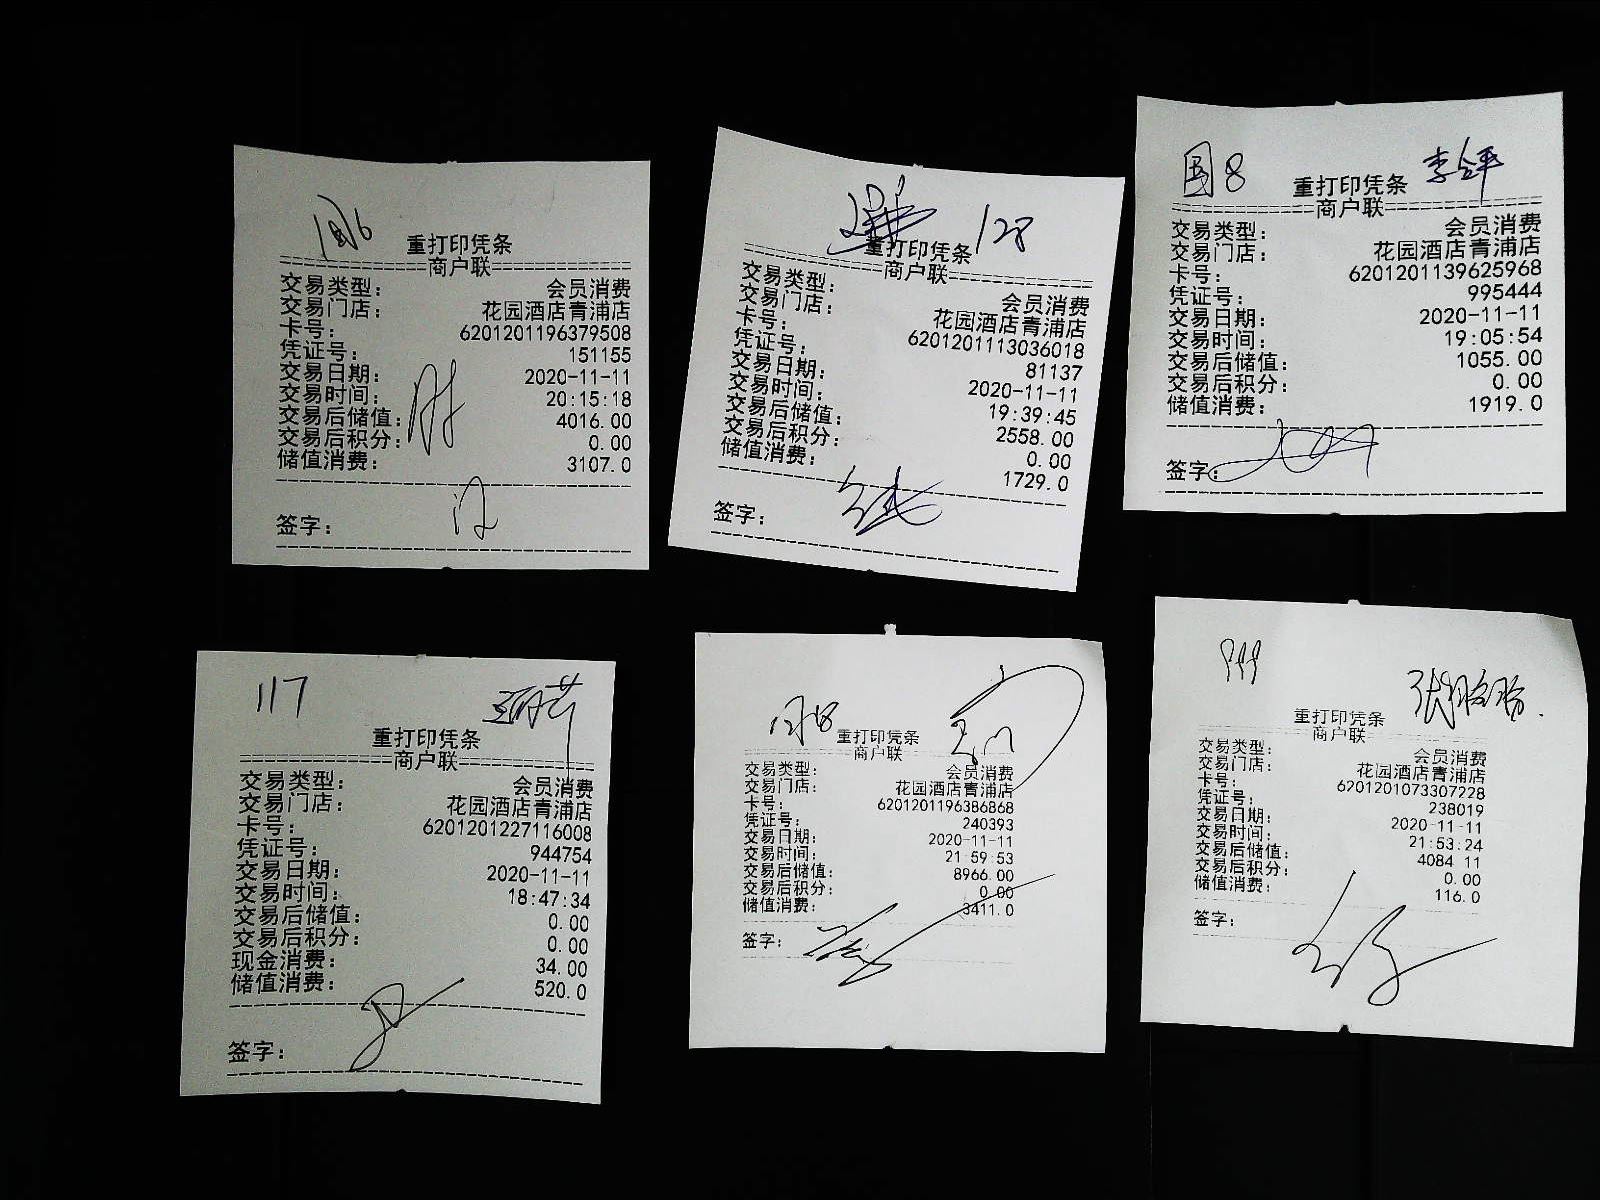 重打印凭条
商户联
交易类型： 会员消费
交易门店： 花园酒店青浦店
卡号： 6201201196379508
凭证号： 151155
交易日期： 2020-11-11
交易时间： 20:15:18
交易后储值： 4016.00
交易后积分： 0.00
储值消费： 3107.0
签字：
128
重打印凭条
商户联
交易类型： 会员消费
交易门店： 花园酒店青浦店
卡号： 6201201113036018
凭证号： 81137
交易日期： 2020-11-11
交易时间： 19:39:45
交易后储值： 2558.00
交易后积分： 0.00
储值消费： 1729.0
签字：
国8
重打印凭条
商户联
交易类型： 会员消费
交易门店： 花园酒店青浦店
卡号： 6201201139625968
凭证号： 995444
交易日期： 2020-11-11
交易时间： 19:05:54
交易后储值： 1055.00
交易后积分： 0.00
储值消费： 1919.0
签字：
117
重打印凭条
商户联
交易类型： 会员消费
交易门店： 花园酒店青浦店
卡号： 6201201227116008
凭证号： 944754
交易日期： 2020-11-11
交易时间： 18:47:34
交易后储值： 0.00
交易后积分： 0.00
现金消费： 34.00
储值消费： 520.0
签字：
重打印凭条
商户联
交易类型： 会员消费
交易门店： 花园酒店青浦店
卡号： 6201201196386868
凭证号： 240393
交易日期： 2020-11-11
交易时间： 21:59:53
交易后储值： 8966.00
交易后积分： 0.00
储值消费： 3411.0
签字：
999
重打印凭条
商户联
交易类型： 会员消费
交易门店： 花园酒店青浦店
卡号： 6201201073307228
凭证号： 238019
交易日期： 2020-11-11
交易时间： 21:53:24
交易后储值： 4084.11
交易后积分： 0.00
储值消费： 116.0
签字：